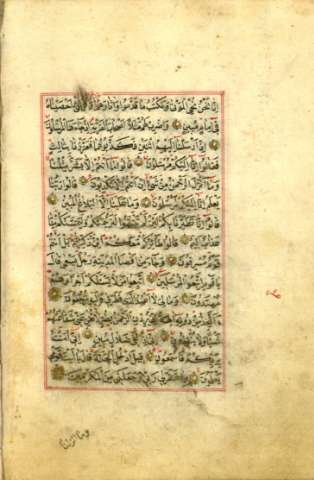 إنا نحن نحي الموتى ونكتب ما قدموا وآثارهم وكل شيء أحصيناه
في إمام مبين واضرب لهم مثلا أصحاب القرية إذ جاءها المرسلون
إذ أرسلنا إليهم اثنين فكذبوهما فعززنا بثالث
فقالوا إنا إليكم مرسلون قالوا ما أنتم إلا بشر مثلنا
وما أنزل الرحمن من شيء إن أنتم إلا تكذبون قالوا ربنا
يعلم إنا إليكم لمرسلون وما علينا إلا البلاغ المبين
قالوا إنا تطيرنا بكم لئن لم تنتهوا لنرجمنكم وليمسنكم منا
عذاب أليم قالوا طائركم معكم أئن ذكرتم بل أنتم
قوم مسرفون وجاء من أقصا المدينة رجل يسعى قال
يا قوم اتبعوا المرسلين اتبعوا من لا يسئلكم أجرا وهم
مهتدون وما لي لا أعبد الذي فطرني وإليه ترجعون
أأتخذ من دونه آلهة إن يردن الرحمن بضر لا تغن عني شفاعتهم
شيئا ولا ينقذون إني إذا لفي ضلال مبين إني آمنت
بربكم فاسمعون قيل ادخل الجنة قال يا ليت قومي
يعلمون بما غفر لي ربي وجعلني من المكرمين
وما أنزلنا